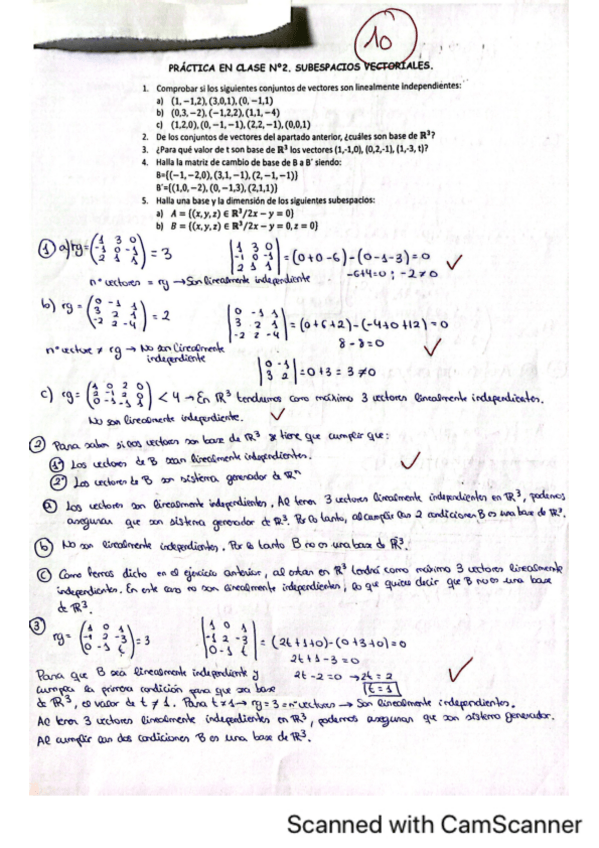 10
PRÁCTICA EN CLASE Nº2. SUBESPACIOS VECTORIALES.
1. Comprobar si los siguientes conjuntos de vectores son linealmente independientes:
a) (1,−1,2),(3,0,1),(0,−1,1)
b) (0,3,−2),(−1,2,2),(1,1,−4)
c) (1,2,0),(0,−1,−1),(2,2,−1),(0,0,1)
2. De los conjuntos de vectores del apartado anterior, ¿cuáles son base de R³?
3. ¿Para qué valor de t son base de R³ los vectores (1,-1,0), (0,2,-1), (1,-3, t)?
4. Halla la matriz de cambio de base de B a B' siendo:
B={(−1,−2,0),(3,1,−1),(2,−1,−1)}
B'={(1,0,−2),(0,−1,3),(2,1,1)}
5. Halla una base y la dimensión de los siguientes subespacios:
a) A = {(x,y,z) ∈ R³/2x − y = 0}
b) B = {(x,y,z) ∈ R³/2x − y = 0, z = 0}
① a) rg = (1 3 0 / -1 0 -1 / 2 1 1) = 3 |1 3 0 / -1 0 -1 / 2 1 1| = (0+0-6)-(0-1-3)=0
-6+4=0; -2≠0
nº vectores = rg → Son linealmente independiente
b) rg = (0 -1 1 / 3 2 1 / -2 2 -4) = 2 |0 -1 1 / 3 2 1 / -2 2 -4| = (0+6+2)-(-4+0+12)=0
8-8=0
nº vectore ≠ rg → No son linealmente independiente |0 -1 / 3 2| = 0+3=3≠0
c) rg = < 4 → En R³ tendríamos como máximo 3 vectores linealmente independientes.
No son linealmente independiente.
② Para saber si los vectores son base de R³ se tiene que cumplir que:
1º Los vectores de B sean linealmente independientes.
2º Los vectores de B son sistema generador de Rⁿ
ⓐ Los vectores son linealmente independientes. Al tener 3 vectores linealmente independientes en R³, podemos
asegurar que son sistema generador de R³. Por lo tanto, al cumplir las 2 condiciones B es una base de R³.
ⓑ No son linealmente independientes. Por lo tanto B no es una base de R³.
ⓒ Como hemos dicho en el ejercicio anterior, al estar en R³ tendrá como máximo 3 vectores linealmente
independientes. En este caso no son linealmente independientes, lo que quiere decir que B no es una base
de R³.
③ rg = (1 0 1 / -1 2 -3 / 0 -1 t) = 3 |1 0 1 / -1 2 -3 / 0 -1 t| = (2t+1+0)-(0+3+0)=0
2t+1-3=0
Para que B sea linealmente independiente y 2t-2=0 → 2t=2
cumpla la primera condición para que sea base t=1
de R³, el valor de t ≠ 1. Para t≠1 → rg=3=nº vectores → Son linealmente independientes.
Al tener 3 vectores linealmente independientes en R³, podemos asegurar que son sistema generador.
Al cumplir las dos condiciones B es una base de R³.
Scanned with CamScanner